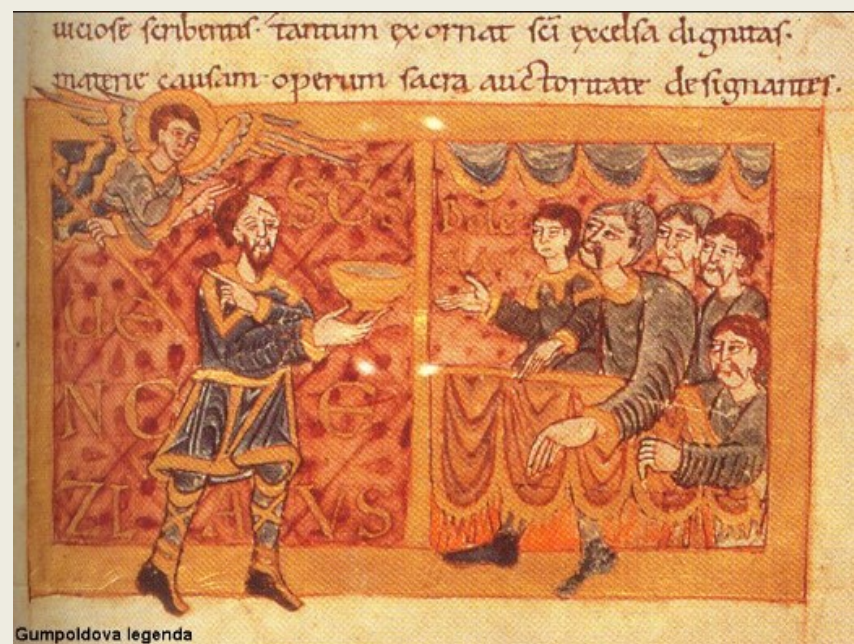 uiciose scribentis. tantum exornat sci excelsa dignitas.
materie causam operum sacra auctoritate designantes.
SCS
Bole
UE
NC E
ZL A VS
Gumpoldova legenda